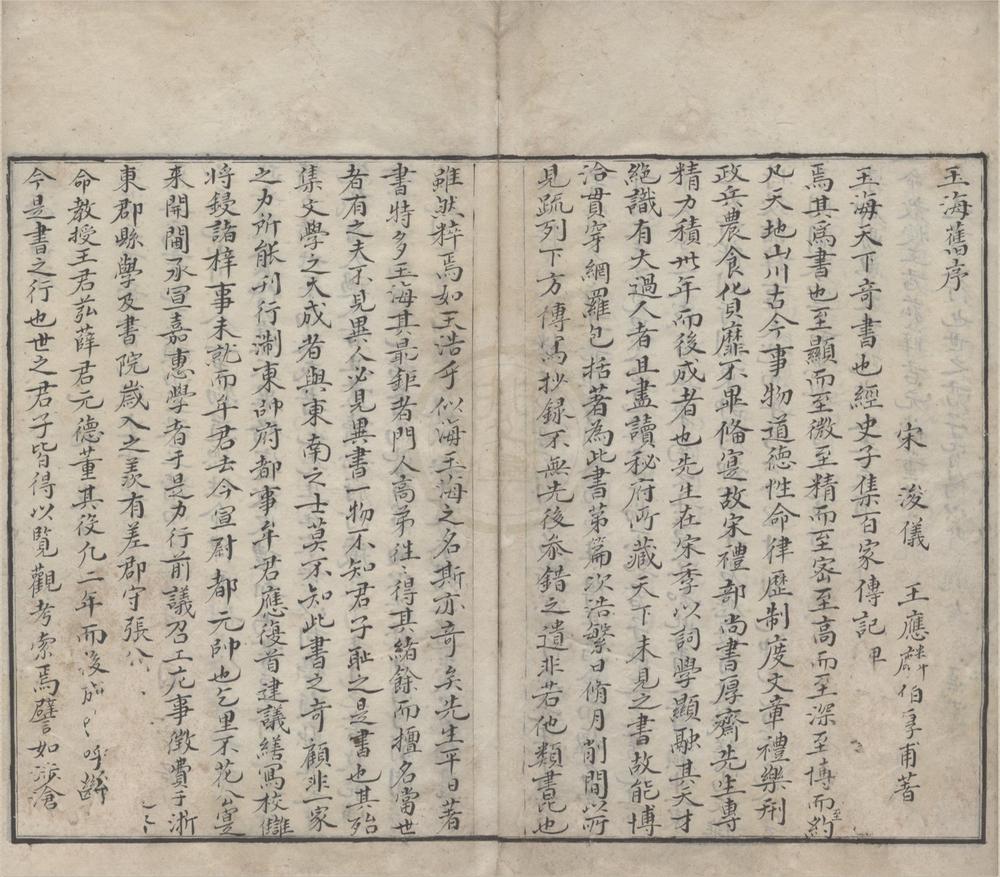 玉海舊序
宋 浚儀 王應麟伯厚甫著
玉海天下奇書也經史子集百家傳記
焉其爲書也至顯而至微至精而至密至高而至深至博而至約
凡天地山川古今事物道德性命律歷制度文章禮樂刑
政兵農食貨靡不畢脩寔故宋禮部尚書厚齋先生專
精力積卅年而後成者也先生在宋季以詞學顯融其天才
絕識有大過人者且盡讀秘府所藏天下未見之書故能博
洽貫穿網羅包括著為此書第篇次浩繁日脩月削間以所
見䟽列下方傳寫抄録不無先後叅錯之遺非若他類書比也
雖然粹焉如玉浩乎似海玉海之名斯亦竒矣先生平日著
書特多玉海其最鉅者門人高弟往〻得其緒餘而擅名當世
者有之夫不見異人必見異書一物不知君子恥之是書也其殆
集文學之大成者與東南之士莫不知此書之奇顧非一家
之力所能刋行浙東帥府都事牟君應復首建議繕寫校讎
將鋟諸梓事未就而牟君去今宣尉都元帥也乞里不花公寔
來開閫承宣嘉惠學者于是力行前議召工庀事徵費于浙
東郡縣學及書院歲入之羡有差郡守張公
命教授王君𦮼薛君元德董其役凢二年而後成吁
今是書之行也世之君子皆得以覽觀考索焉譬如涉滄